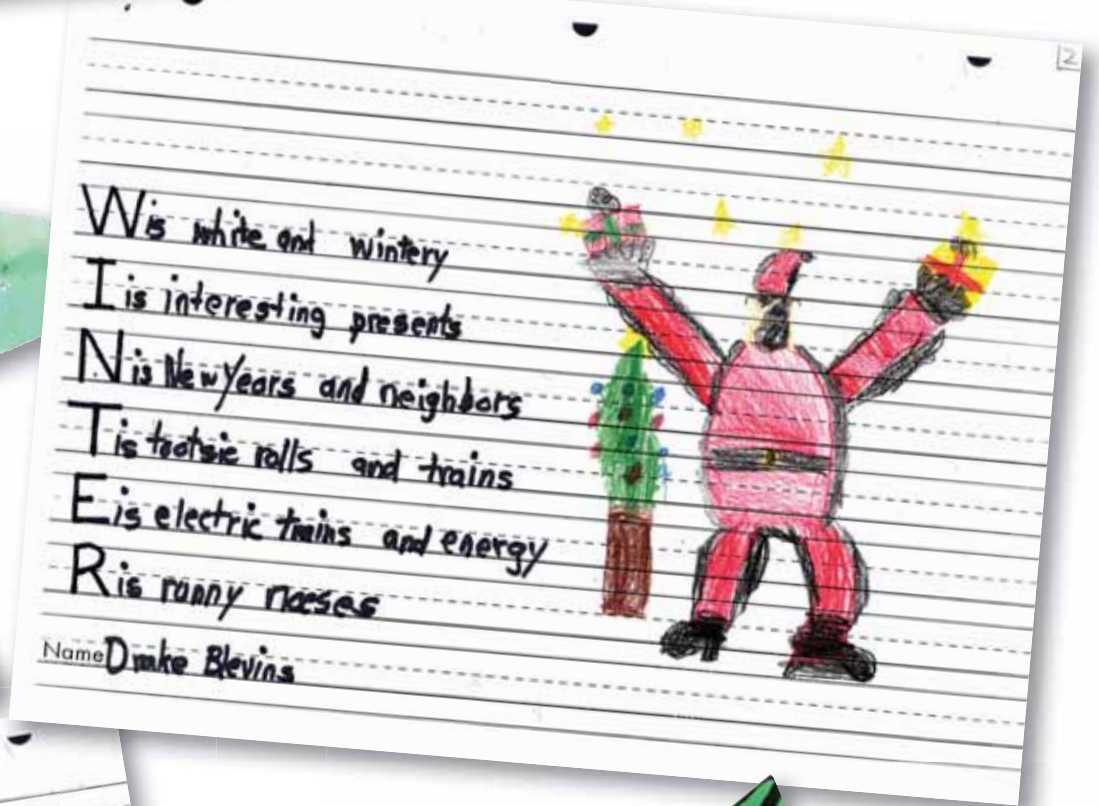 2
W is white and wintery
I is interesting presents
N is New Years and neighbors
T is tootsie rolls and trains
E is electric trains and energy
R is runny noeses
Name Drake Blevins